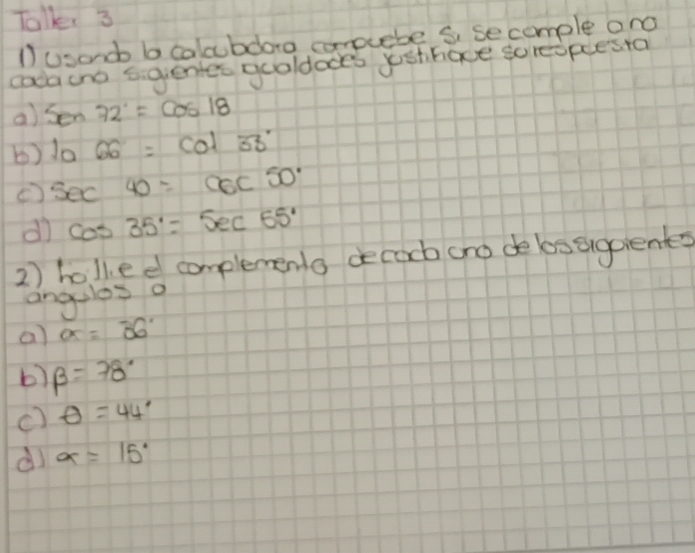 Taller 3
1) usando la calculadora compruebe si se cumple o no
cada una siguientes igualdades justifique su respuesta
a) Sen 72° = Cos 18
b) ta 66 = Cot 33°
c) Sec 40 = csc 50°
d) cos 35° = Sec 55°
2) halle el complemento de cada uno de los siguientes
angulos
a) α = 36°
b) β = 78°
c) θ = 44°
d) α = 15°